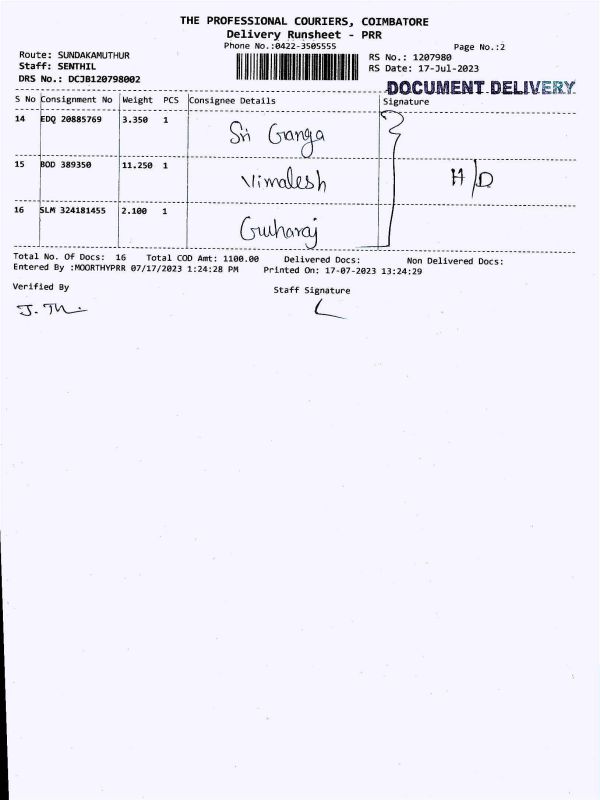 THE PROFESSIONAL COURIERS, COIMBATORE
Delivery Runsheet - PRR
Phone No.:0422-3505555
Page No.:2
Route: SUNDAKAMUTHUR
RS No.: 1207980
Staff: SENTHIL
RS Date: 17-Jul-2023
DRS No.: DCJB120798002
DOCUMENT DELIVERY
S No Consignment No Weight PCS Consignee Details Signature
14 EDQ 20885769 3.350 1 Sri Ganga
15 BOD 389350 11.250 1 Vimalesh H/D
16 SLM 324181455 2.100 1 Guharaj
Total No. Of Docs: 16 Total COD Amt: 1100.00 Delivered Docs: Non Delivered Docs:
Entered By :MOORTHYPRR 07/17/2023 1:24:28 PM Printed On: 17-07-2023 13:24:29
Verified By
Staff Signature